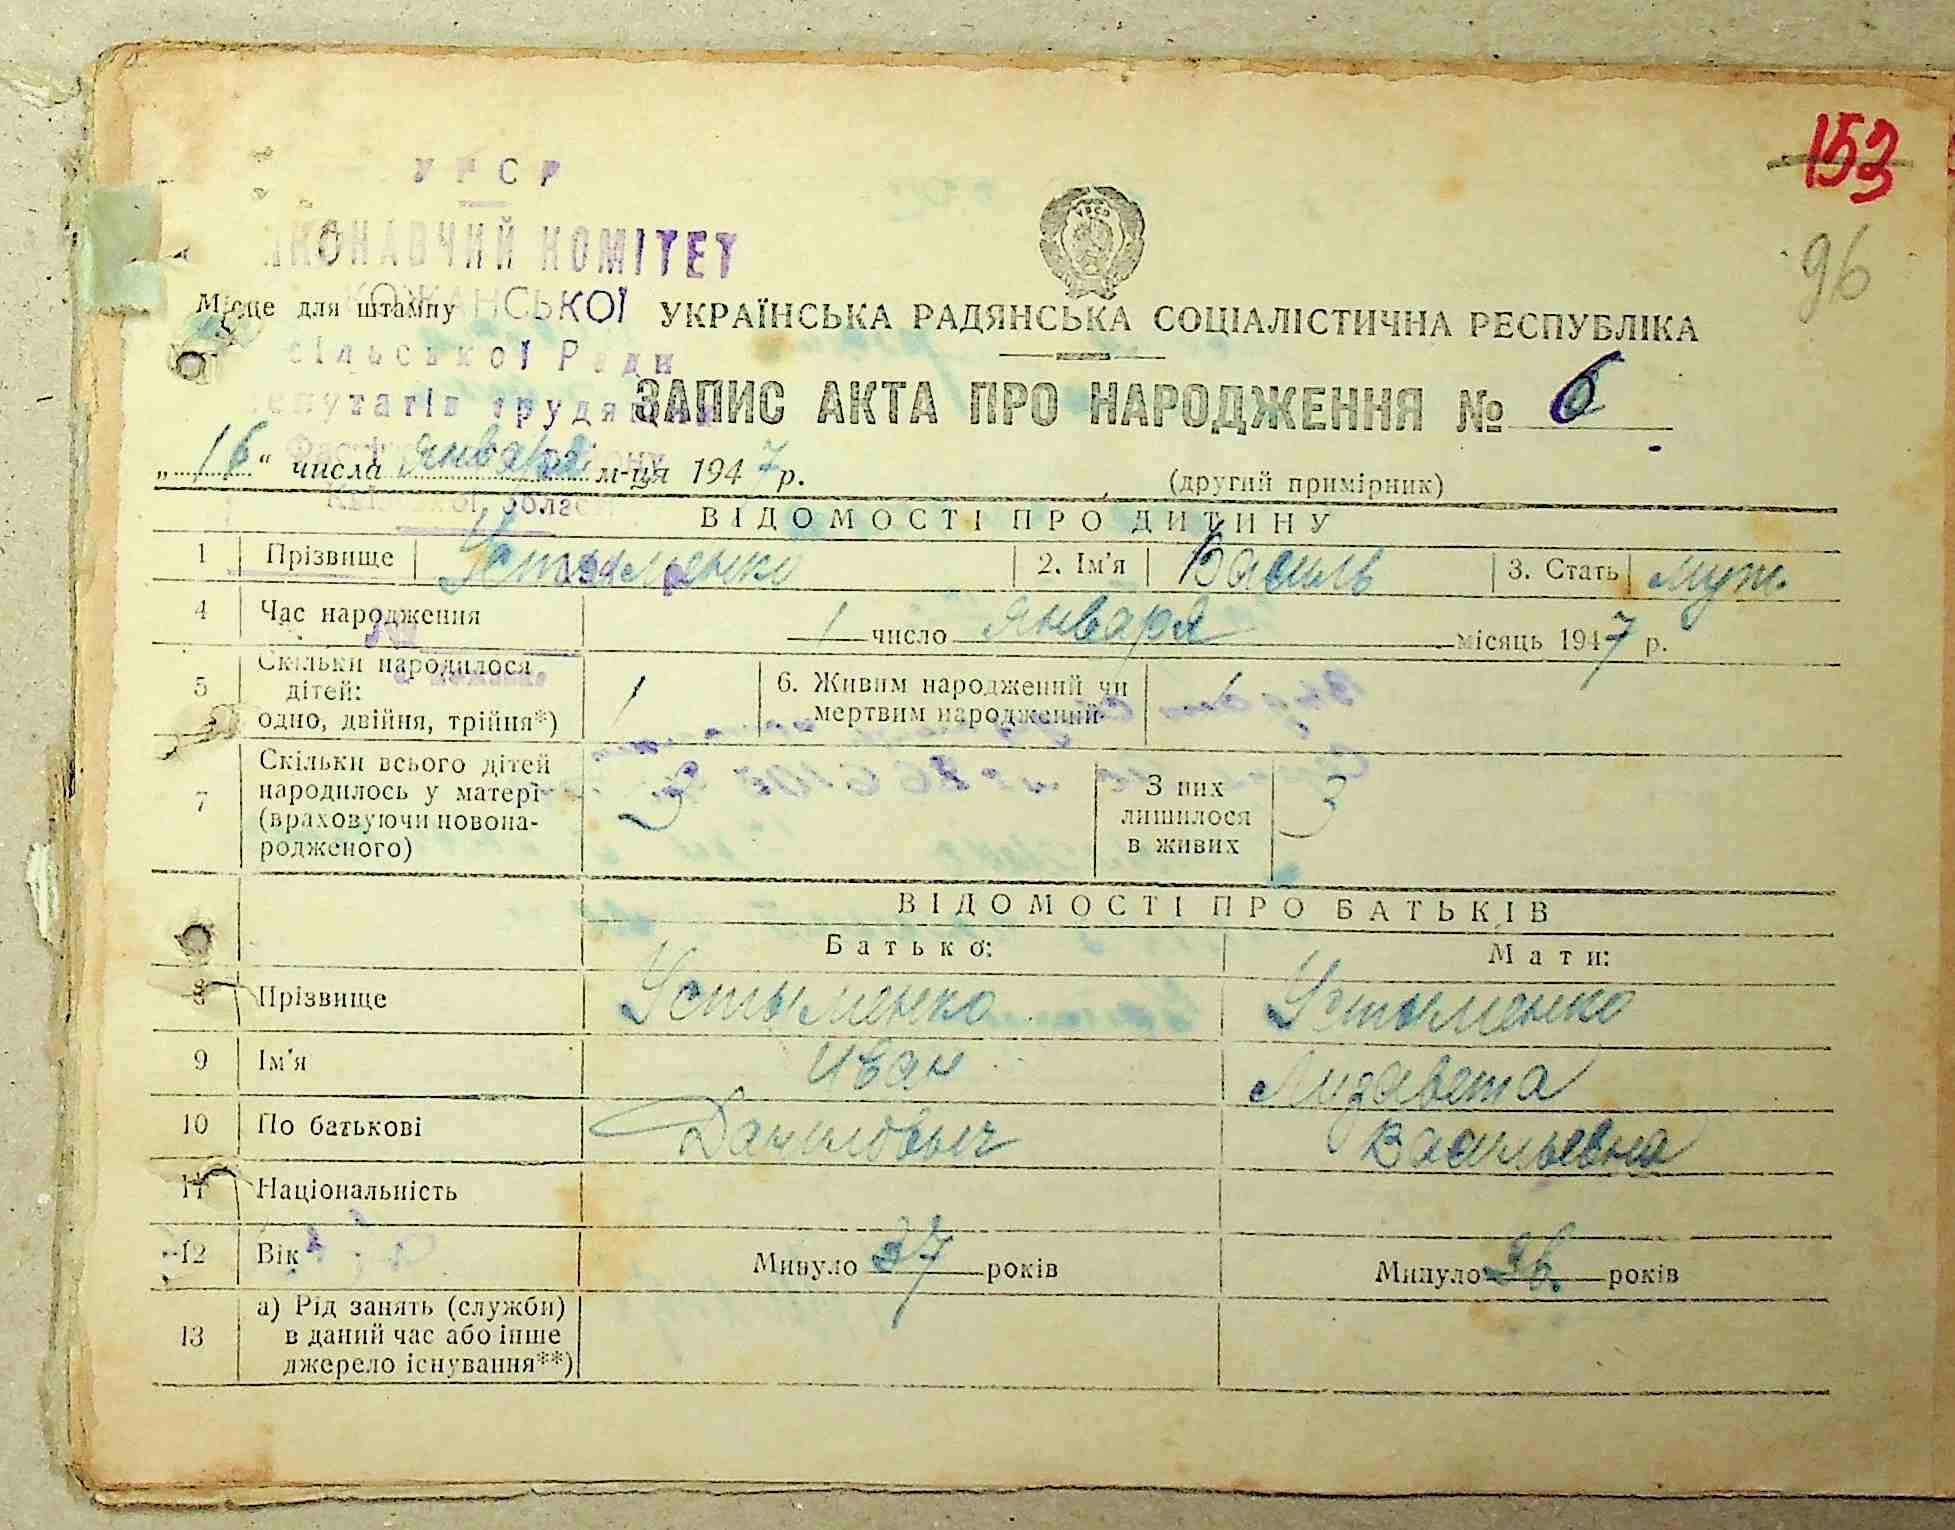 153
96
У Р С Р
КОНАВЧИЙ КОМІТЕТ
КОЖАНСЬКОЇ
Місце для штампу
УКРАЇНСЬКА РАДЯНСЬКА СОЦІАЛІСТИЧНА РЕСПУБЛІКА
сільської Ради
епутатів трудящих
ЗАПИС АКТА ПРО НАРОДЖЕННЯ № 6
„16“ числа января м-ця 1947 р.
(другий примірник)
ВІДОМОСТІ ПРО ДИТИНУ
1 Прізвище Устыменко 2. Ім'я Василь 3. Стать муж.
4 Час народження 1 число января місяць 1947 р.
5 Скільки народилося дітей: одно, двійня, трійня*) 1 6. Живим народжений чи мертвим народжений 1
7 Скільки всього дітей народилось у матері (враховуючи новонародженого) 3 З них лишилося в живих 3
ВІДОМОСТІ ПРО БАТЬКІВ
Батько: Мати:
8 Прізвище Устыменко Устыменко
9 Ім'я Иван Лизавета
10 По батькові Даниловыч Васильевна
11 Національність
12 Вік Минуло 37 років Минуло 36 років
13 а) Рід занять (служби) в даний час або інше джерело існування**)